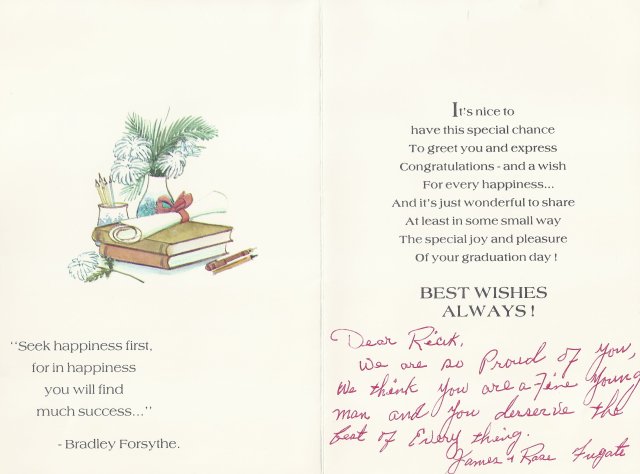 "Seek happiness first,
for in happiness
you will find
much success..."
- Bradley Forsythe.
It's nice to
have this special chance
To greet you and express
Congratulations - and a wish
For every happiness...
And it's just wonderful to share
At least in some small way
The special joy and pleasure
Of your graduation day !
BEST WISHES
ALWAYS !
Dear Rick,
We are so Proud of you,
We think you are a Fine Young
man and you deserve the
best of Every thing.
James & Rose Fugate